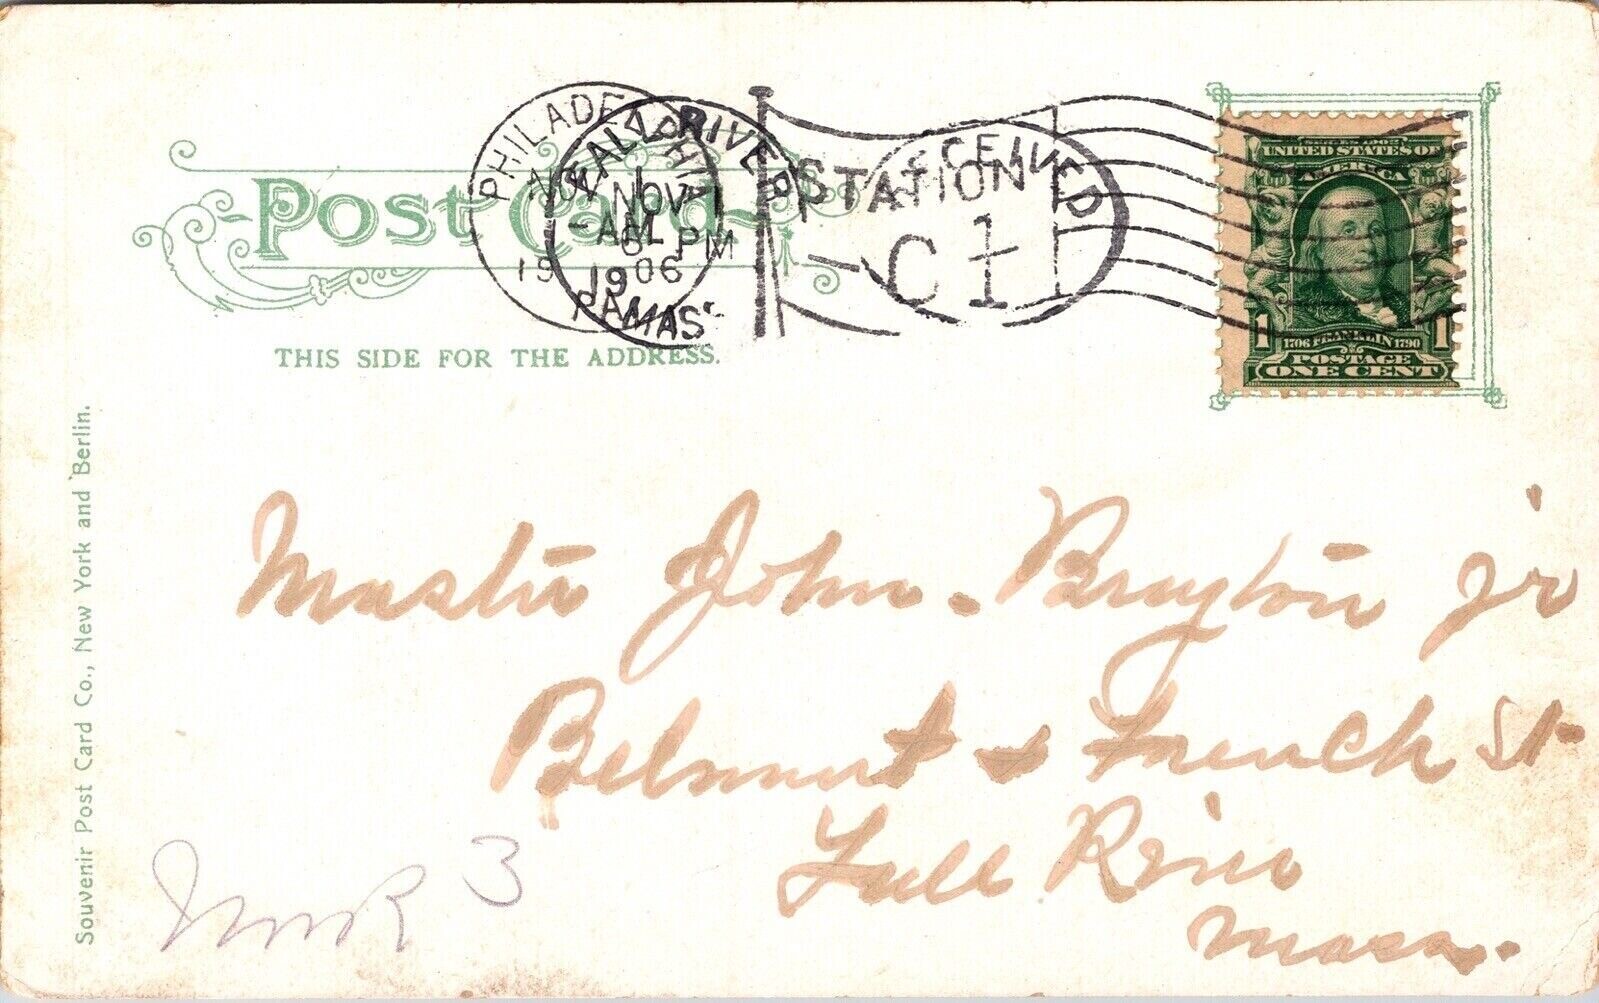 PHILADELPHIA PA
NOV 1
-AM
1906
FALL RIVER MASS
NOV 1
6 PM
1906
STATION
C
RECEIVED
1
Post Card
THIS SIDE FOR THE ADDRESS.
SERIES 1902
UNITED STATES OF
AMERICA
1 1706 FRANKLIN 1790 1
POSTAGE
ONE CENT
Souvenir Post Card Co., New York and Berlin.
Master John Brayton jr
Belmont & French St
Fall River
Mass.
3